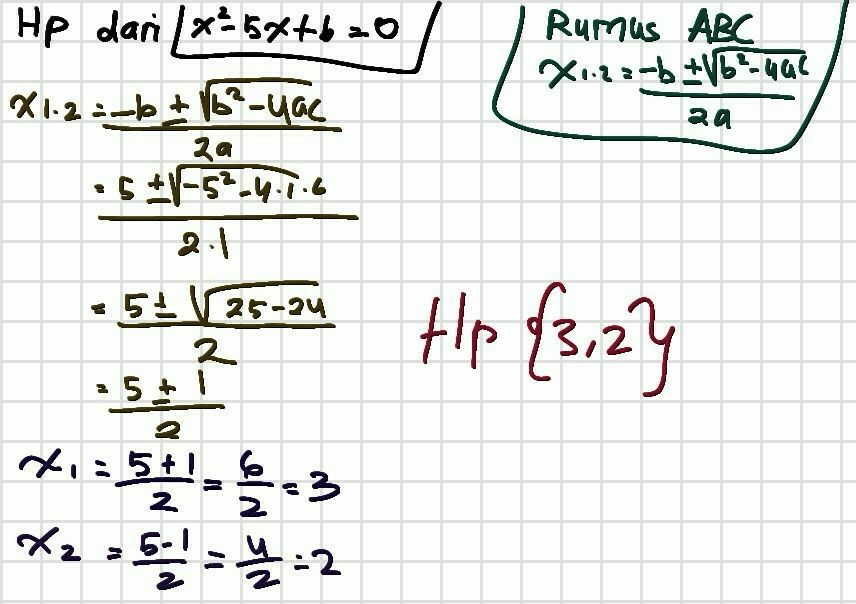 Hp dari x² - 5x + 6 = 0
Rumus ABC
x1.2 = -b ± √b² - 4ac
2a
x1.2 = -b ± √b² - 4ac
2a
= 5 ± √-5² - 4.1.6
2.1
= 5 ± √25 - 24
2
= 5 ± 1
2
Hp {3,2}
x1 = 5+1/2 = 6/2 = 3
x2 = 5-1/2 = 4/2 = 2